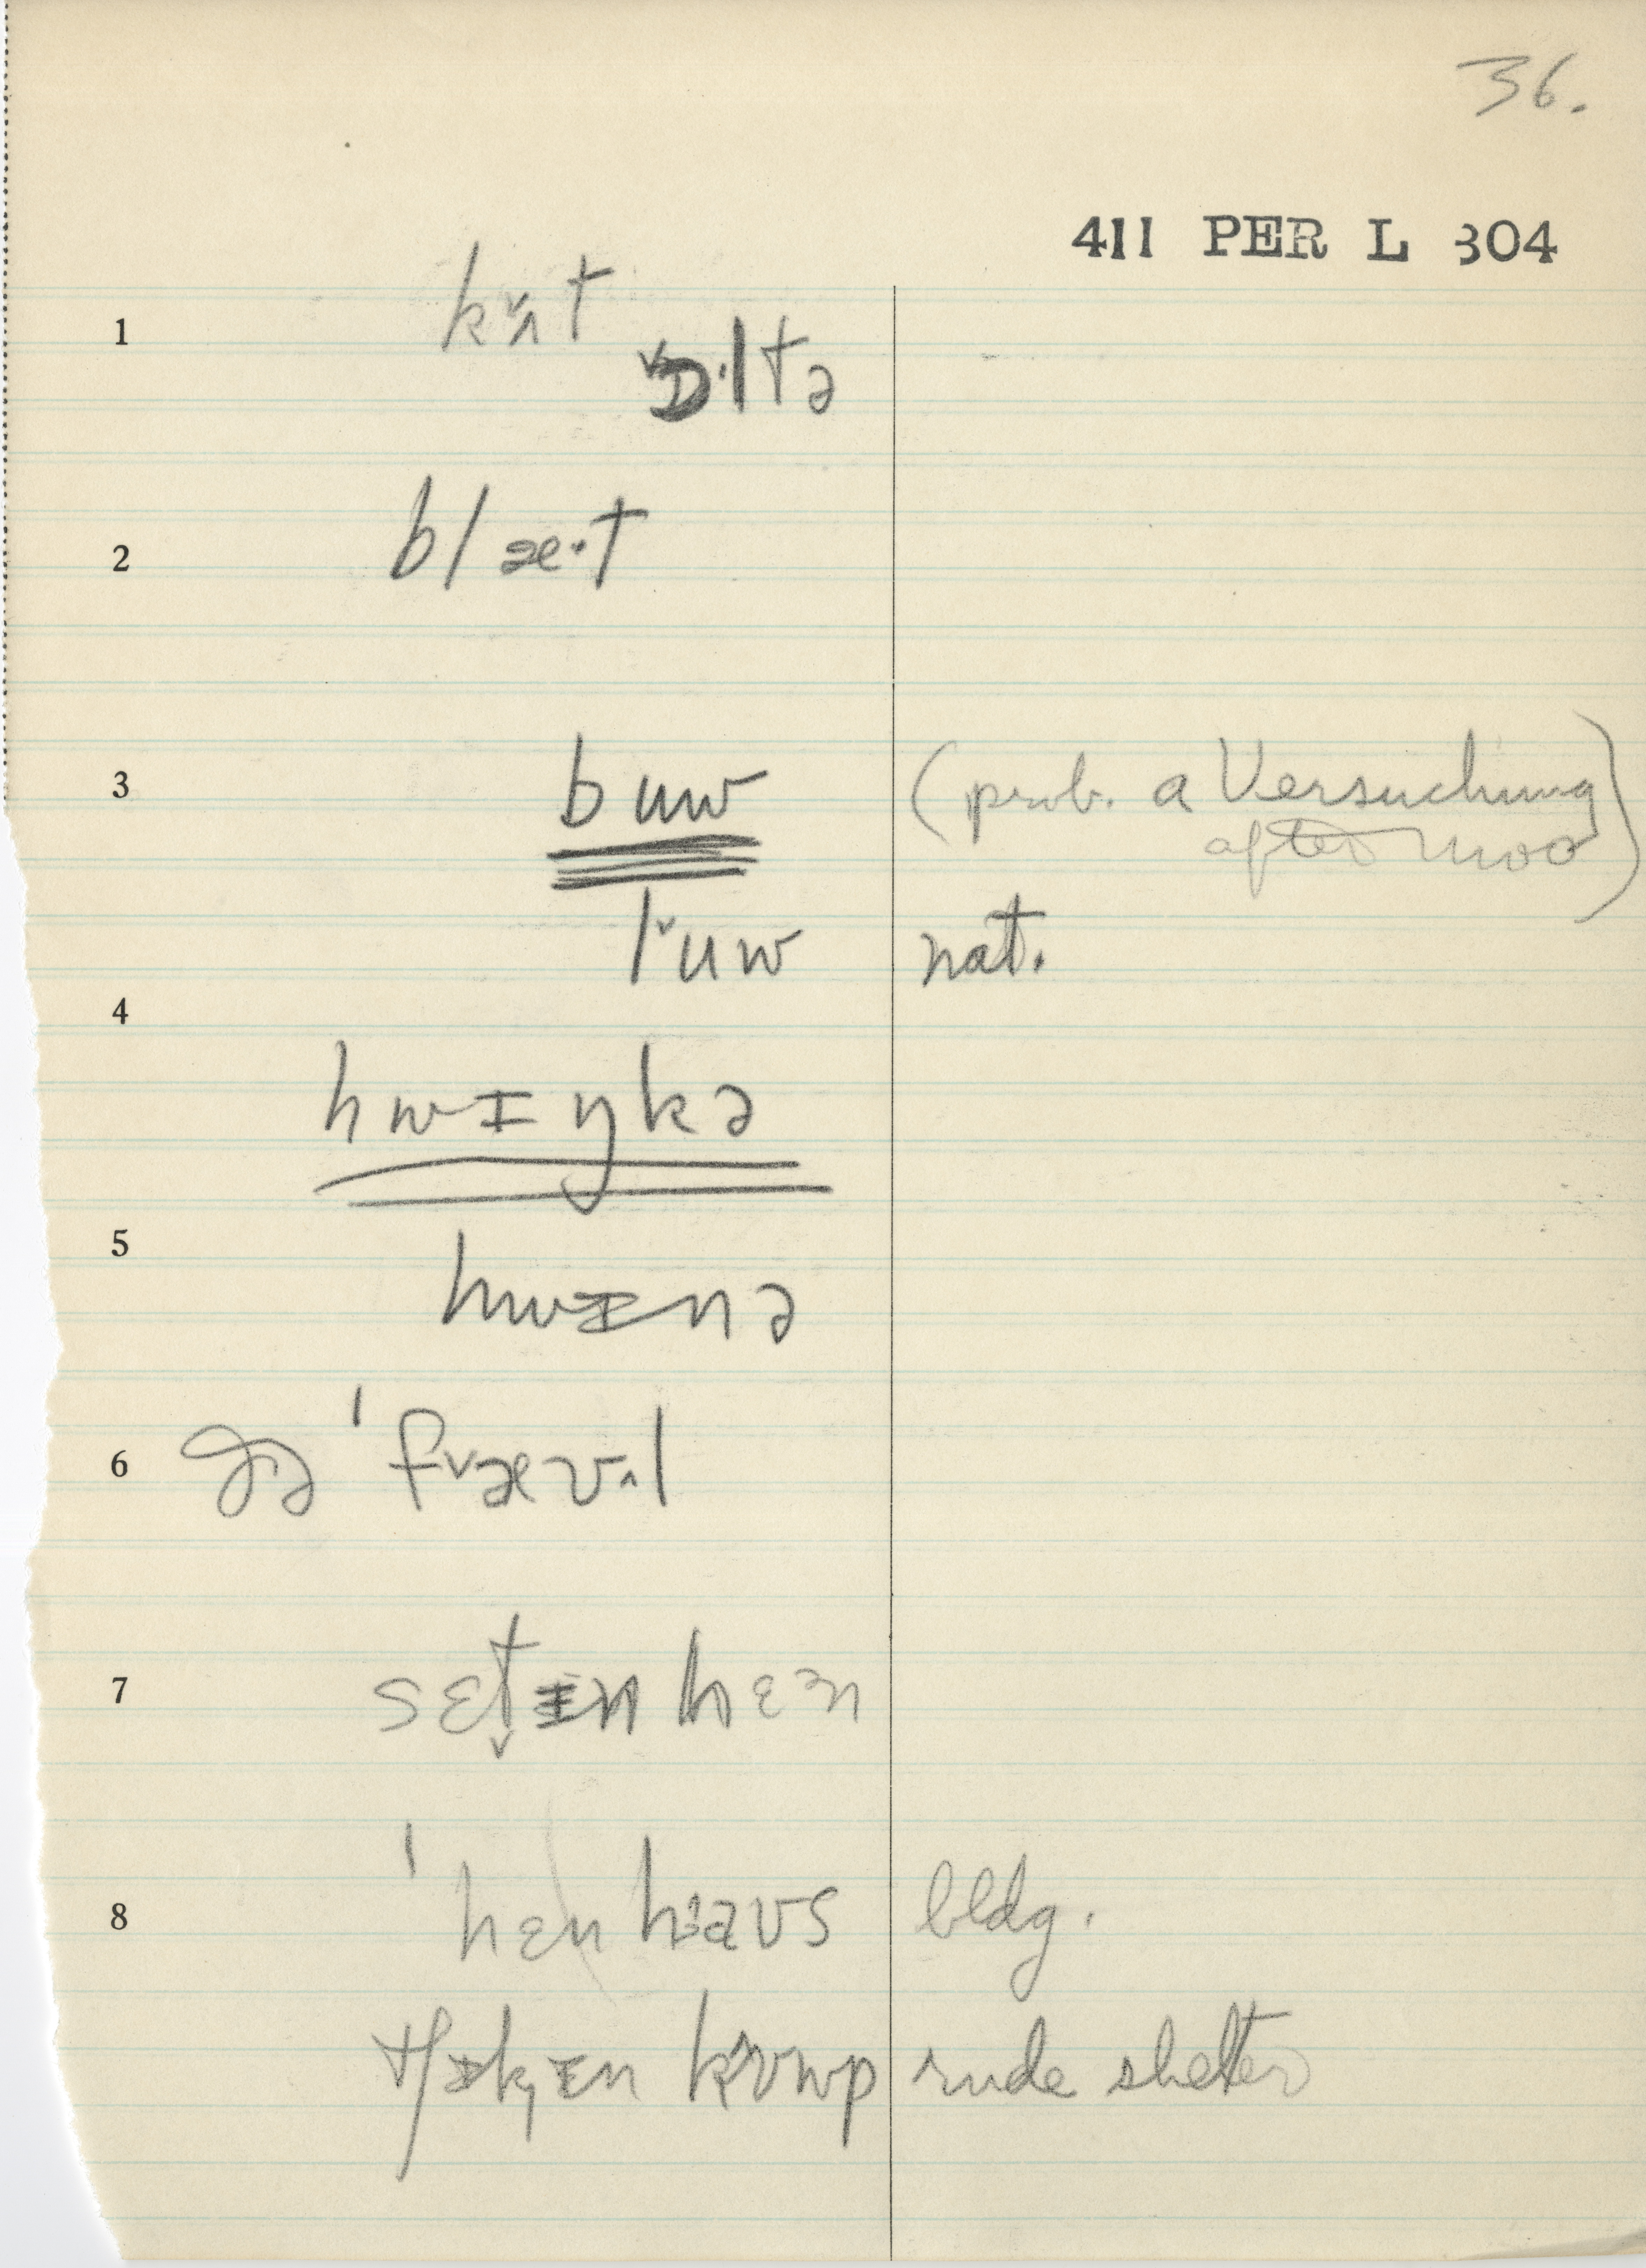 36.
411 PER L 304
1 kʌ̌t
ˇɒ·ltə
2 blæ·t
3 buw (prob. a Versuchung
after moo)
lˇuw nat.
4
hwɪŋkə
5
hwɪnə
6 ˈfˇævʌl
7 sɛt̬ɪn hɛən
8 ˈhɛn haʊs bldg.
tʃɪkɪn kʊwp rude shelter